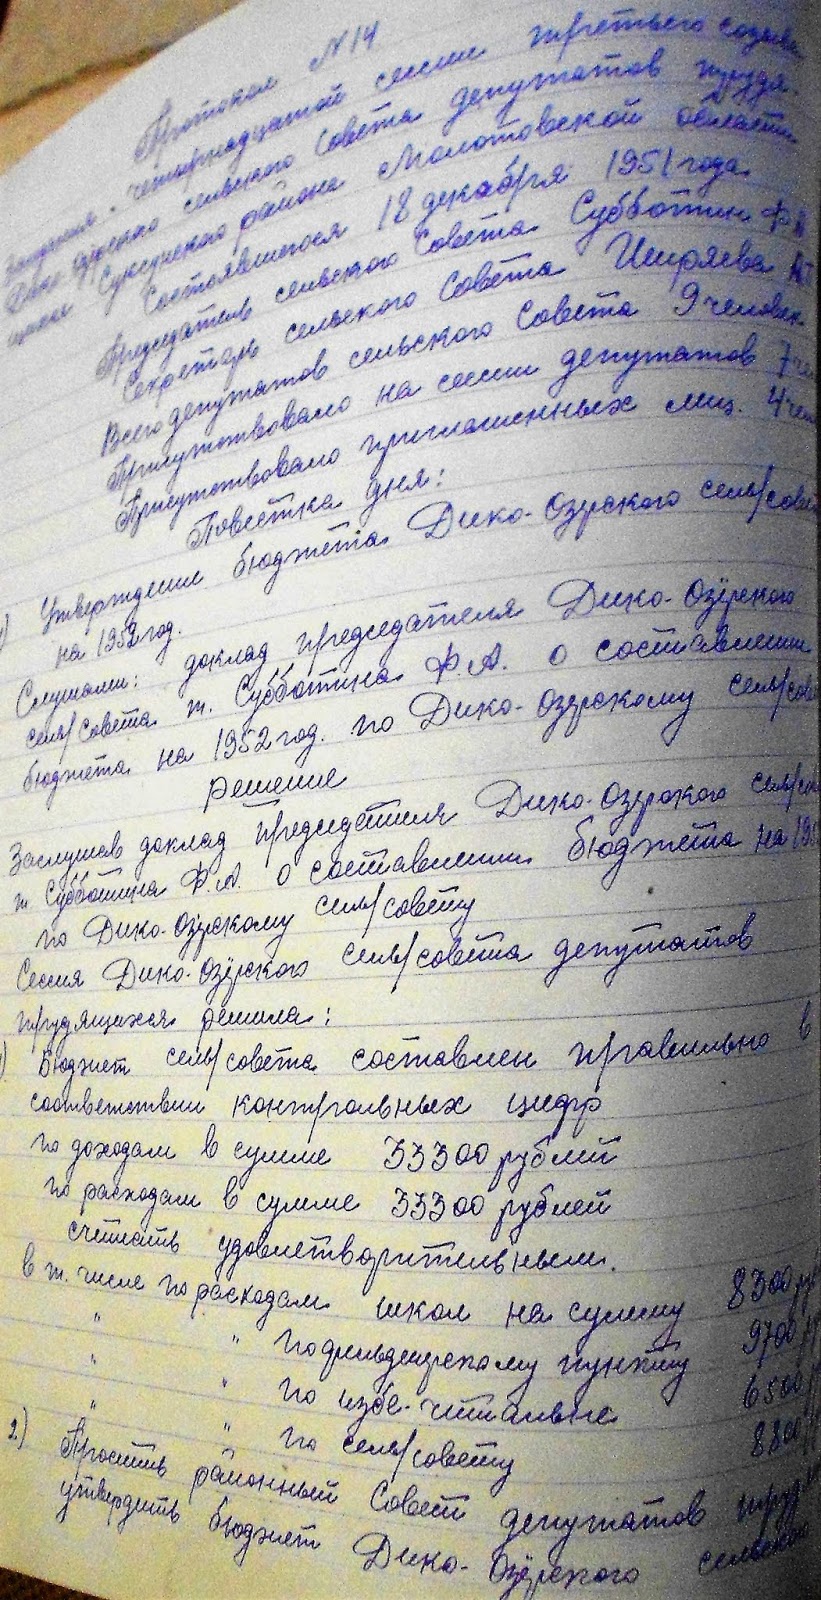 Протокол № 14
Заседания - четырнадцатой сессии третьего созыва
Дико-Озёрского сельского Совета депутатов трудя
щихся Суксунского района Молотовской области
Состоявшегося 18 декабря 1951 года.
Председатель сельского Совета Субботин Ф.А
Секретарь сельского Совета Ширяева
Всего депутатов сельского Совета 9 человек
Присутствовало на сессии депутатов 7 чел
Присутствовало приглашенных лиц. 4 чел
Повестка дня:
1) Утверждение бюджета Дико-Озёрского сель/сове
на 1952 год.
Слушали: доклад председателя Дико-Озёрского
сель/совета т. Субботина Ф.А. о составлении
бюджета на 1952 год. по Дико-Озёрскому сель/сове
решение
Заслушав доклад председателя Дико-Озёрского сель/со
т. Субботина Ф.А. о составлении бюджета на 195
по Дико-Озёрскому сель/совету
Сессия Дико-Озёрского сель/совета депутатов
трудящихся решила:
1) Бюджет сель/совета составлен правильно в
соответствии контрольных цифр
по доходам в сумме 33300 рублей
по расходам в сумме 33300 рублей
считать удовлетворительным.
в т. числе по расходам школ на сумму 8300 ру
" " по фельдшерскому пункту 9700 р
" " по избе-читальне 6500 р
" " по сель/совету 8800
2) Просить районный Совет депутатов трудя
утвердить бюджет Дико-Озёрского сельского